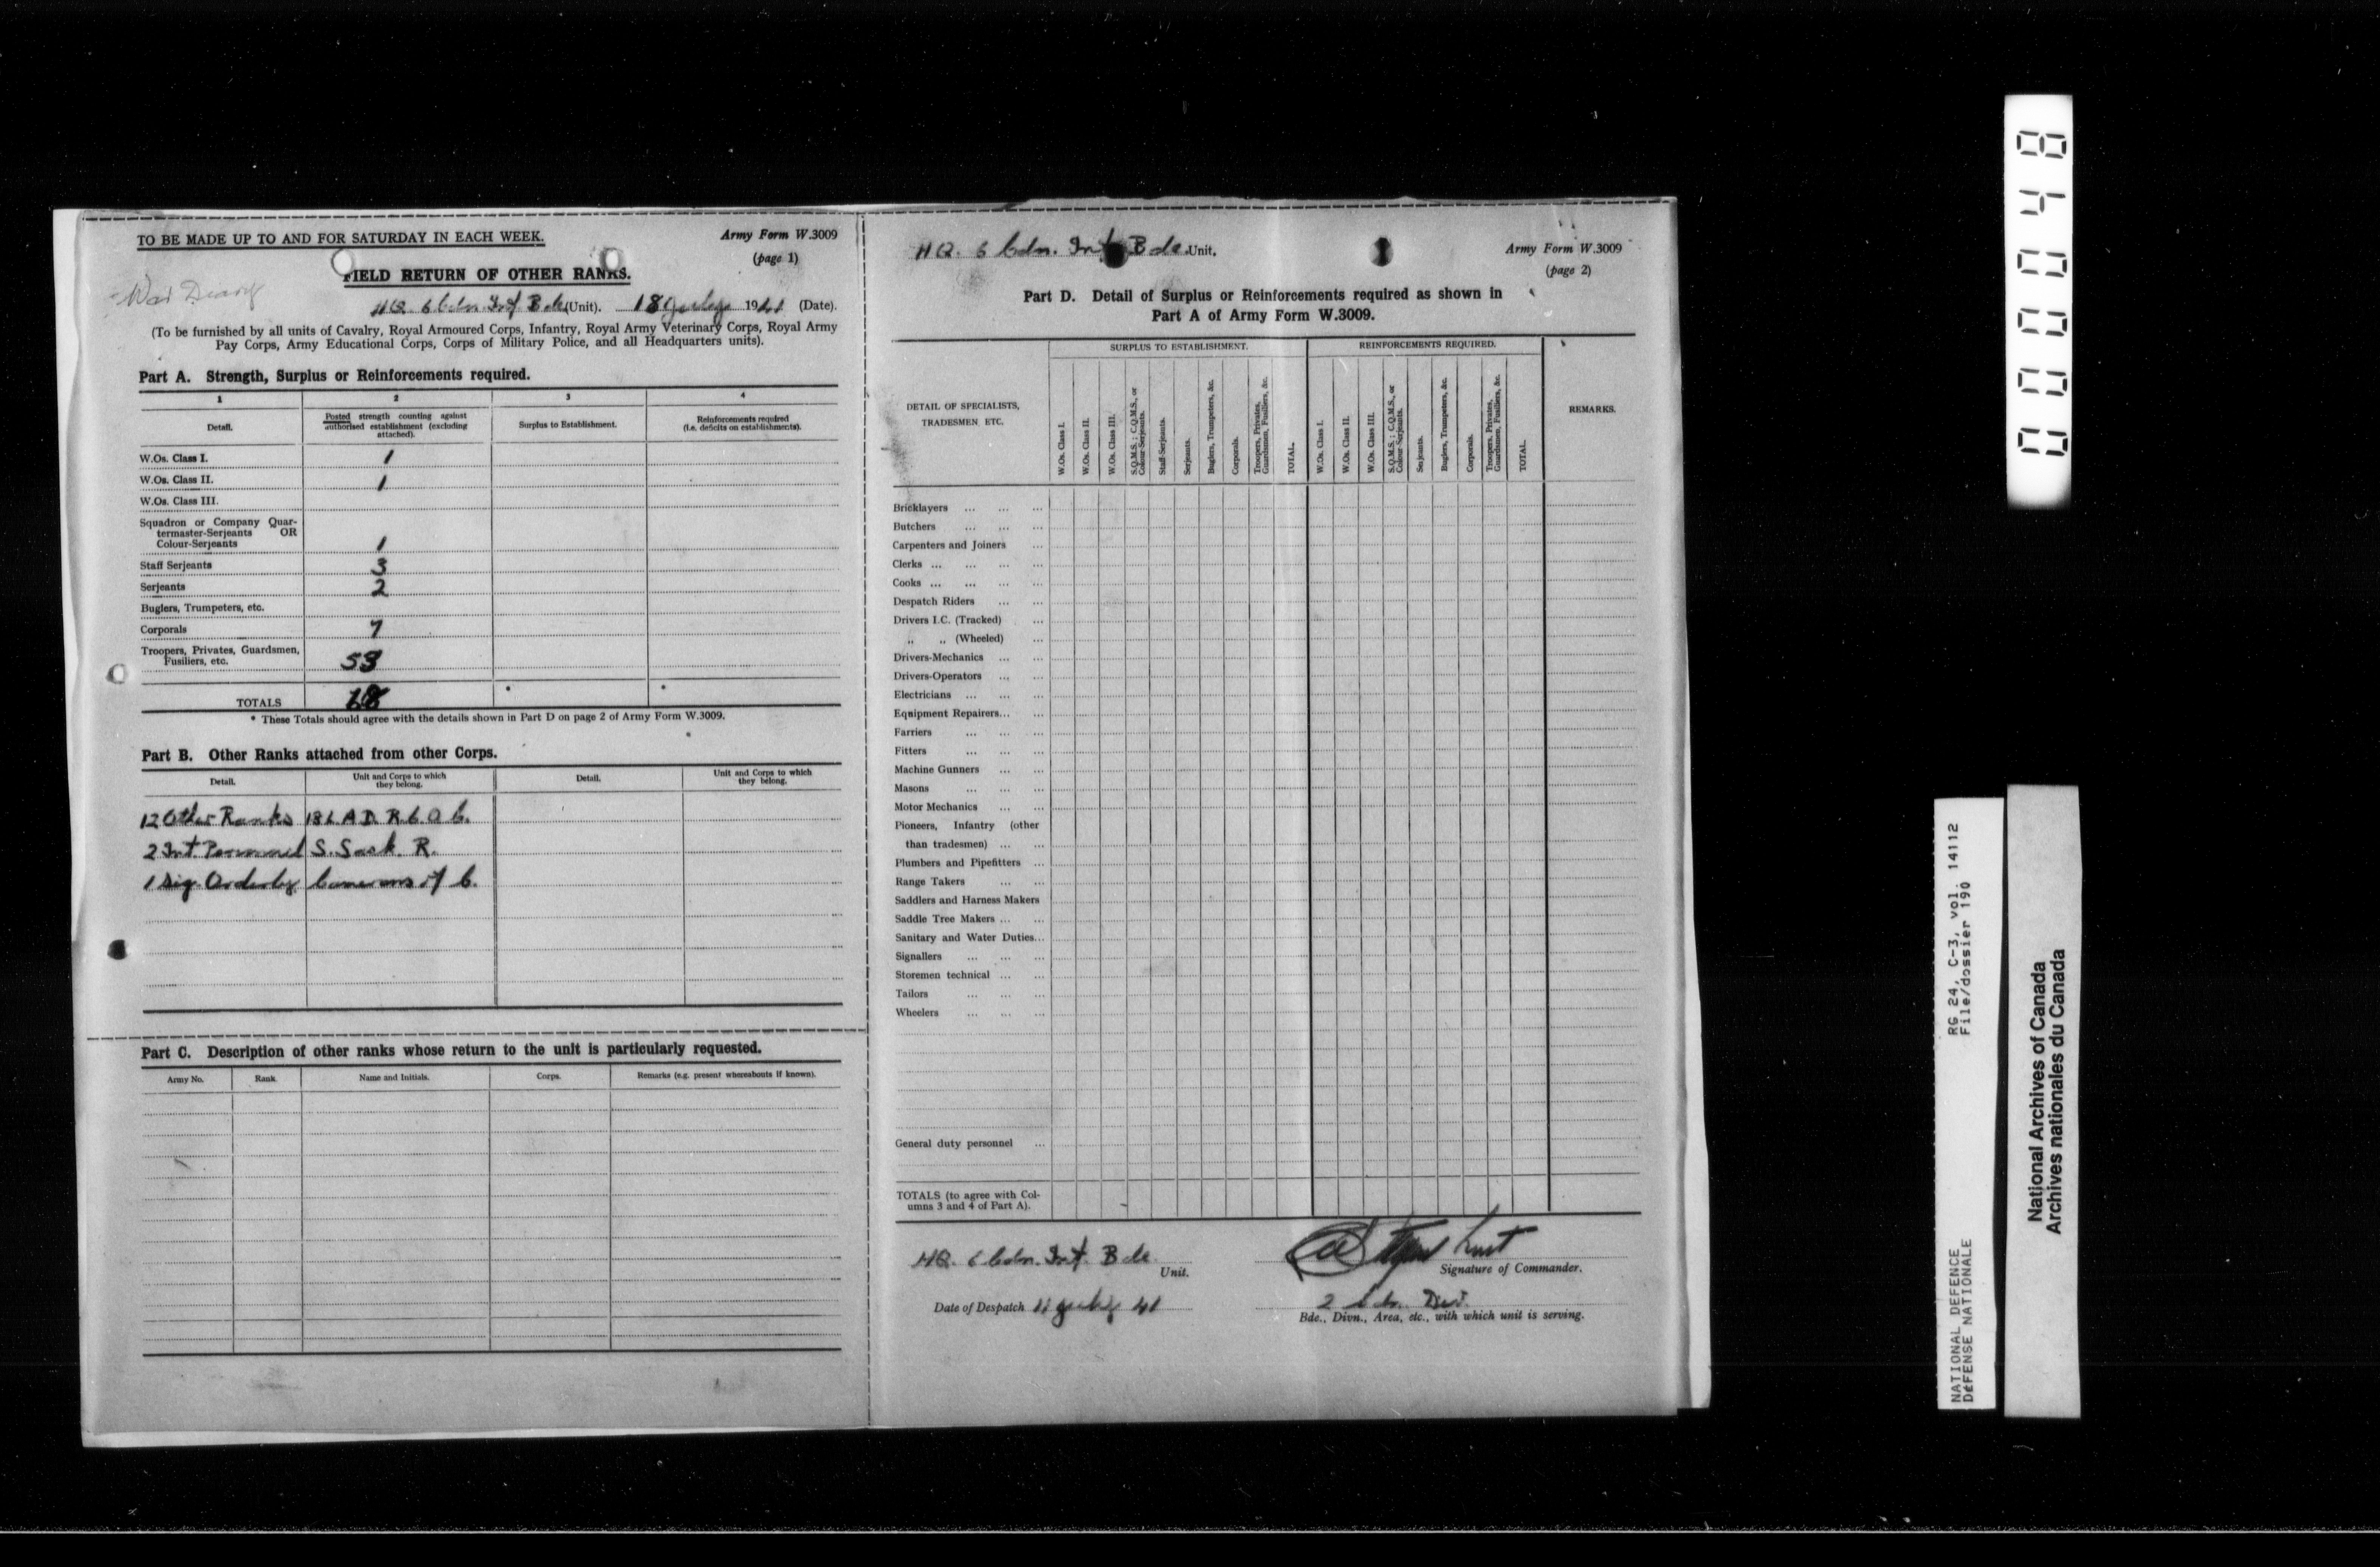 TO BE MADE UP TO AND FOR SATURDAY IN EACH WEEK.
Army Form W.3009
(page 1)
FIELD RETURN OF OTHER RANKS.
War Diary
HQ. 6 Cdn. Inf. Bde. (Unit). 18 July 1941 (Date).
(To be furnished by all units of Cavalry, Royal Armoured Corps, Infantry, Royal Army Veterinary Corps, Royal Army
Pay Corps, Army Educational Corps, Corps of Military Police, and all Headquarters units).
Part A. Strength, Surplus or Reinforcements required.
1 2 3 4
Detail.
Posted strength counting against
authorised establishment (excluding
attached).
Surplus to Establishment.
Reinforcements required
(i.e. deficits on establishments).
W.Os. Class I. 1
W.Os. Class II. 1
W.Os. Class III.
Squadron or Company Quar-
termaster-Serjeants OR
Colour-Serjeants 1
Staff Serjeants 3
Serjeants 2
Buglers, Trumpeters, etc.
Corporals 7
Troopers, Privates, Guardsmen,
Fusiliers, etc. 53
TOTALS * *
* These Totals should agree with the details shown in Part D on page 2 of Army Form W.3009.
Part B. Other Ranks attached from other Corps.
Detail.
Unit and Corps to which
they belong.
Detail.
Unit and Corps to which
they belong.
12 Other Ranks 18 L.A.D. R.C.O.C.
2 Int. Personnel S. Sask. R.
1 Sig. Orderly Camerons of C.
Part C. Description of other ranks whose return to the unit is particularly requested.
Army No. Rank. Name and Initials. Corps. Remarks (e.g. present whereabouts if known).
HQ. 6 Cdn. Inf. Bde. Unit.
Army Form W.3009
(page 2)
Part D. Detail of Surplus or Reinforcements required as shown in
Part A of Army Form W.3009.
DETAIL OF SPECIALISTS,
TRADESMEN ETC.
SURPLUS TO ESTABLISHMENT.
W.Os. Class I.
W.Os. Class II.
W.Os. Class III.
S.Q.M.S.; C.Q.M.S., or
Colour-Serjeants.
Staff-Serjeants.
Serjeants.
Buglers, Trumpeters, &c.
Corporals.
Troopers, Privates,
Guardsmen, Fusiliers, &c.
TOTAL.
REINFORCEMENTS REQUIRED.
W.Os. Class I.
W.Os. Class II.
W.Os. Class III.
S.Q.M.S.; C.Q.M.S., or
Colour-Serjeants.
Serjeants.
Buglers, Trumpeters, &c.
Corporals.
Troopers, Privates,
Guardsmen, Fusiliers, &c.
TOTAL.
REMARKS.
Bricklayers ... ... ...
Butchers ... ... ...
Carpenters and Joiners ...
Clerks ... ... ... ...
Cooks ... ... ... ...
Despatch Riders ... ...
Drivers I.C. (Tracked) ...
„ „ (Wheeled) ...
Drivers-Mechanics ... ...
Drivers-Operators ... ...
Electricians ... ... ...
Equipment Repairers... ...
Farriers ... ... ...
Fitters ... ... ...
Machine Gunners ... ...
Masons ... ... ...
Motor Mechanics ... ...
Pioneers, Infantry (other
than tradesmen) ... ...
Plumbers and Pipefitters ...
Range Takers ... ...
Saddlers and Harness Makers
Saddle Tree Makers ... ...
Sanitary and Water Duties...
Signallers ... ... ...
Storemen technical ... ...
Tailors ... ... ...
Wheelers ... ... ...
General duty personnel ...
TOTALS (to agree with Col-
umns 3 and 4 of Part A).
HQ. 6 Cdn. Inf. Bde.
Unit.
Signature of Commander.
Date of Despatch 11 July 41
2 Cdn. Div.
Bde., Divn., Area, etc., with which unit is serving.
000048
NATIONAL DEFENCE RG 24, C-3, vol. 14112
DéFENSE NATIONALE File/dossier 190
National Archives of Canada
Archives nationales du Canada